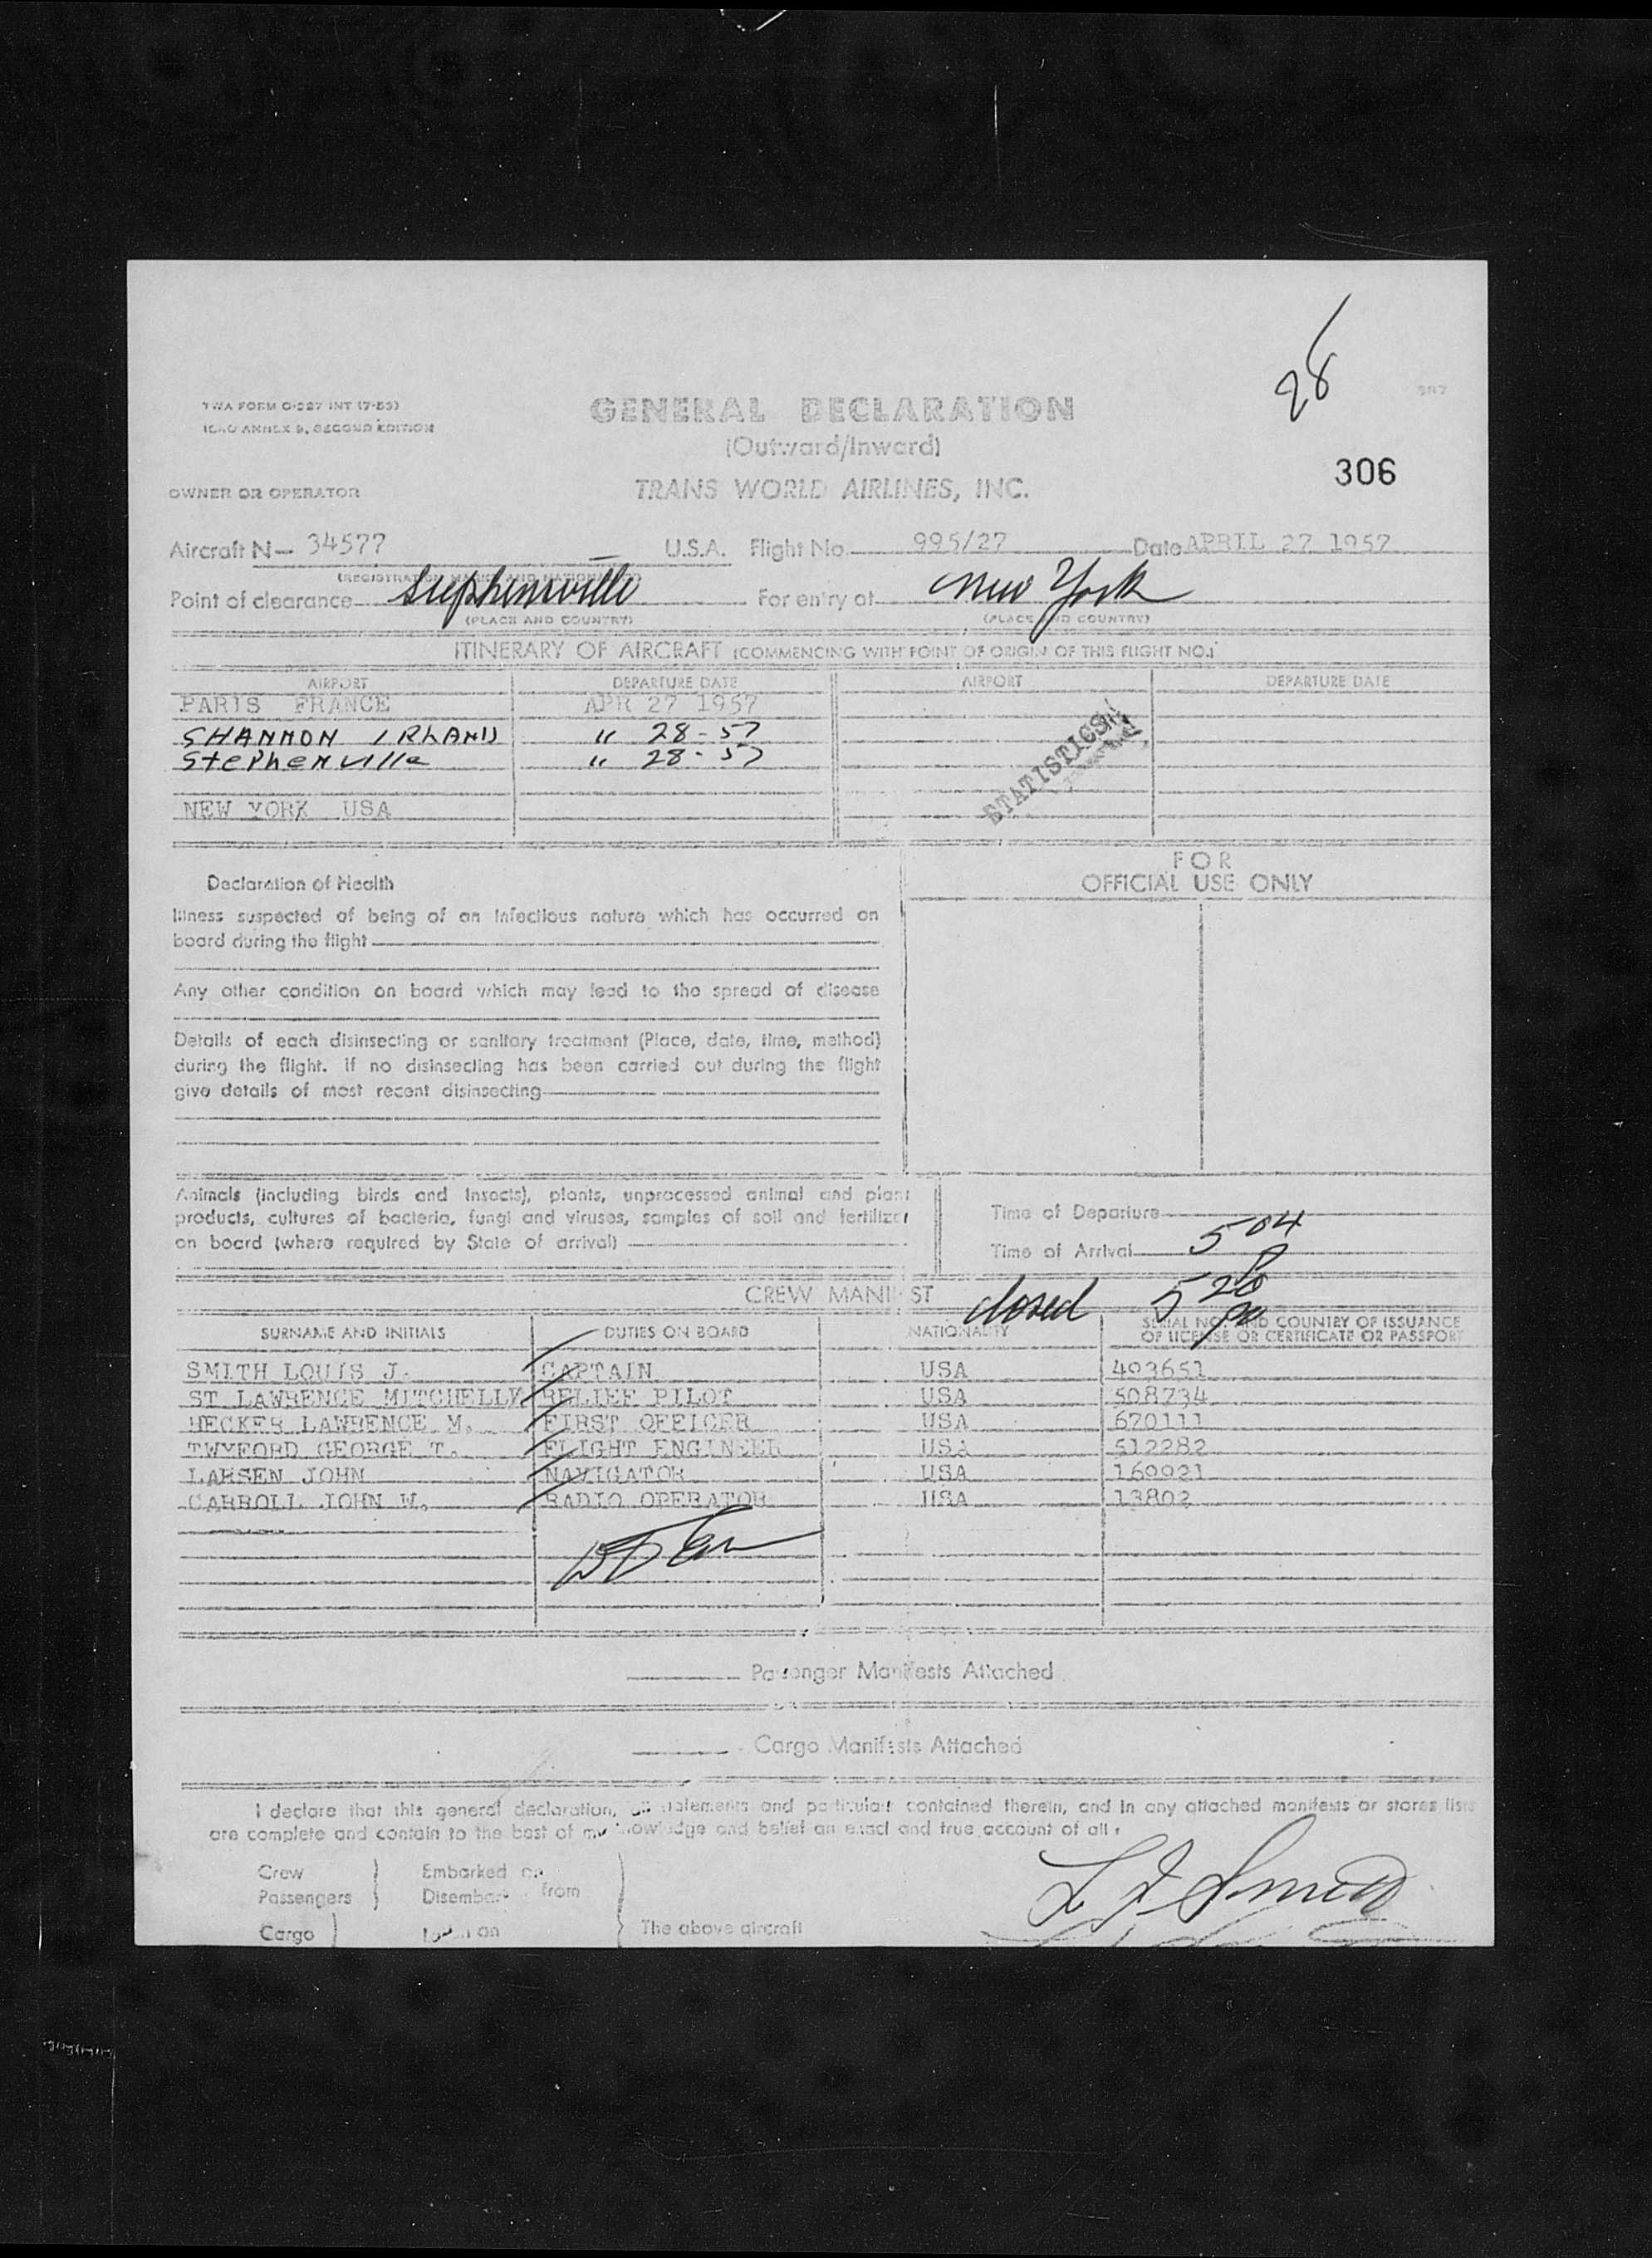 28
TWA FORM O-227 INT (7-53)
ICAO ANNEX 9, SECOND EDITION
GENERAL DECLARATION
(Outward/Inward)
306
OWNER OR OPERATOR
TRANS WORLD AIRLINES, INC.
Aircraft N— 34577 U.S.A. Flight No. 995/27 Date APRIL 27 1957
(REGISTRATION MARKS AND NATIONALITY)
Point of clearance Stephenville For entry at New York
(PLACE AND COUNTRY) (PLACE AND COUNTRY)
ITINERARY OF AIRCRAFT (COMMENCING WITH POINT OF ORIGIN OF THIS FLIGHT NO.)
AIRPORT DEPARTURE DATE AIRPORT DEPARTURE DATE
PARIS FRANCE APR 27 1957
SHANNON IRLAND " 28-57
Stephenville " 28-57
STATISTICS
NEW YORK USA
Declaration of Health
FOR
OFFICIAL USE ONLY
Illness suspected of being of an infectious nature which has occurred on
board during the flight
Any other condition on board which may lead to the spread of disease
Details of each disinsecting or sanitary treatment (Place, date, time, method)
during the flight. If no disinsecting has been carried out during the flight
give details of most recent disinsecting
Animals (including birds and insects), plants, unprocessed animal and plant
products, cultures of bacteria, fungi and viruses, samples of soil and fertilizer
on board (where required by State of arrival)
Time of Departure
Time of Arrival 5 04
CREW MANIFEST
closed 5 20
SURNAME AND INITIALS DUTIES ON BOARD NATIONALITY SERIAL NO. AND COUNTRY OF ISSUANCE
OF LICENSE OR CERTIFICATE OR PASSPORT
SMITH LOUIS J. CAPTAIN USA 493651
ST LAWRENCE MITCHELL RELIEF PILOT USA 508734
HECKER LAWRENCE M. FIRST OFFICER USA 670111
TWYFORD GEORGE T. FLIGHT ENGINEER USA 512282
LARSEN JOHN NAVIGATOR USA 169921
CARROLL JOHN W. RADIO OPERATOR USA 13802
Passenger Manifests Attached
Cargo Manifests Attached
I declare that this general declaration, all statements and particulars contained therein, and in any attached manifests or stores lists
are complete and contain to the best of my knowledge and belief an exact and true account of all
Crew Embarked on
Passengers Disembark from
L J Smith
Cargo on The above aircraft